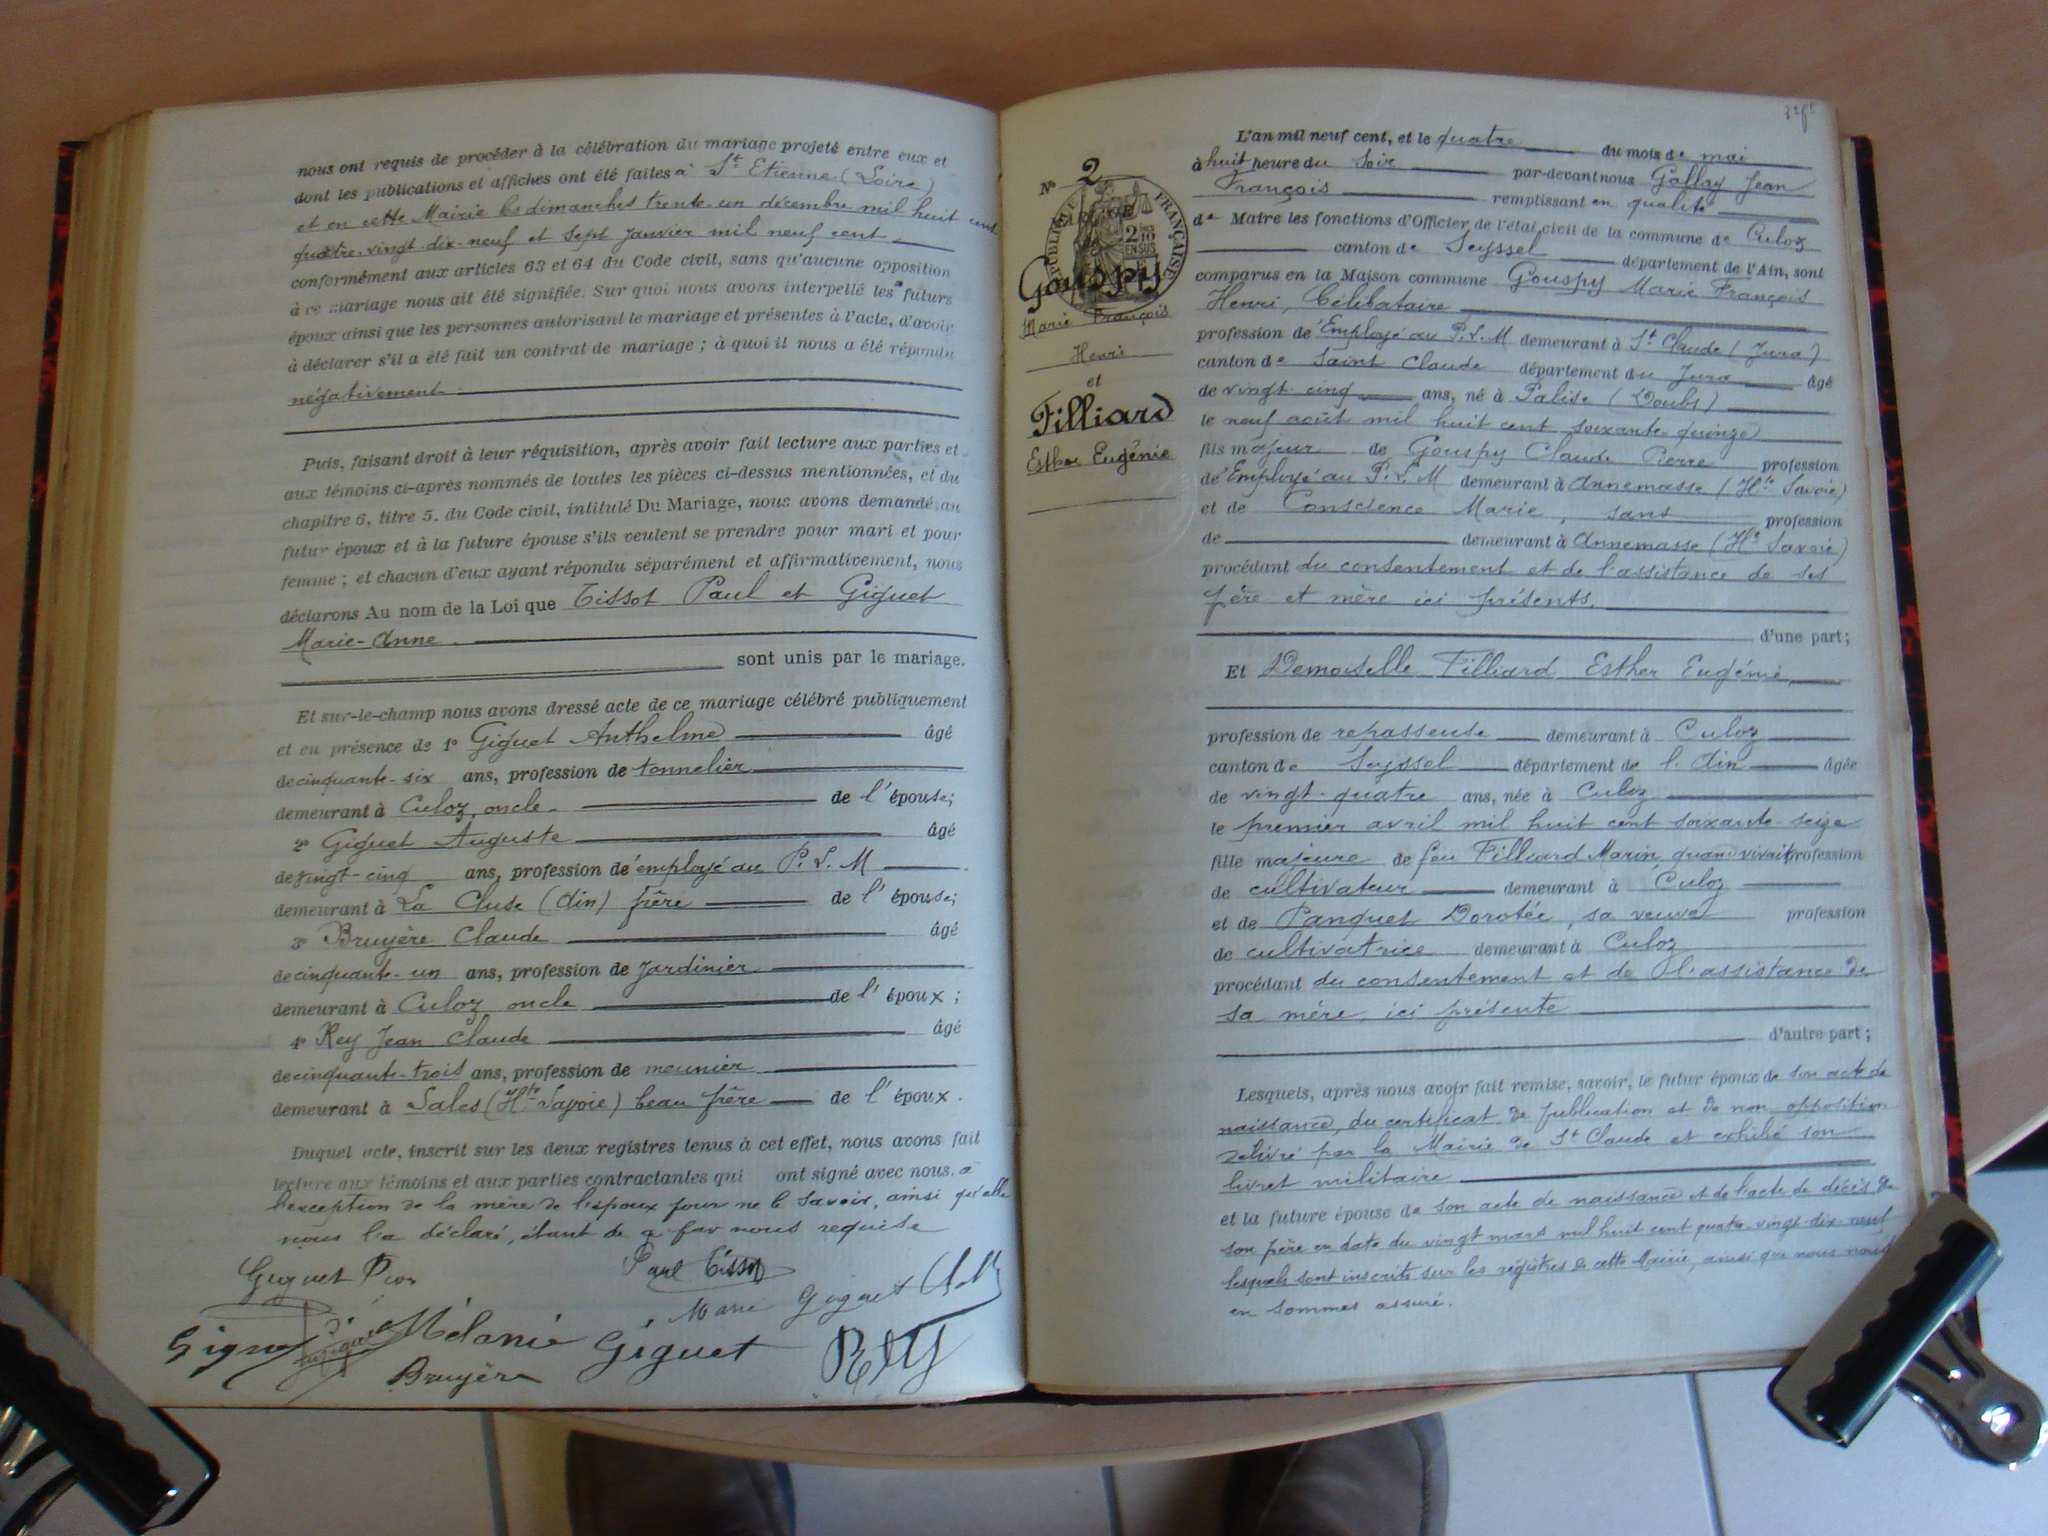 nous ont requis de procéder à la célébration du mariage projeté entre eux et
dont les publications et affiches ont été faites à St Etienne (Loire)
et en cette Mairie les dimanches trente-un décembre mil huit cent
quatre-vingt-dix-neuf et sept janvier mil neuf cent
conformément aux articles 63 et 64 du Code civil, sans qu'aucune opposition
à ce mariage nous ait été signifiée. Sur quoi nous avons interpellé les futurs
époux ainsi que les personnes autorisant le mariage et présentes à l'acte, d'avoir
à déclarer s'il a été fait un contrat de mariage ; à quoi il nous a été répondu
négativement
Puis, faisant droit à leur réquisition, après avoir fait lecture aux parties et
aux témoins ci-après nommés de toutes les pièces ci-dessus mentionnées, et du
chapitre 6, titre 5, du Code civil, intitulé Du Mariage, nous avons demandé au
futur époux et à la future épouse s'ils veulent se prendre pour mari et pour
femme ; et chacun d'eux ayant répondu séparément et affirmativement, nous
déclarons Au nom de la Loi que Tissot Paul et Giguet
Marie-Anne
sont unis par le mariage.
Et sur-le-champ nous avons dressé acte de ce mariage célébré publiquement
et en présence de 1° Giguet Anthelme âgé
de cinquante-six ans, profession de tonnelier
demeurant à Culoz, oncle de l'épouse;
2° Giguet Auguste âgé
de vingt-cinq ans, profession d'employé au P.L.M
demeurant à La Cluse (Ain) frère de l'épouse;
3° Bruyère Claude âgé
de cinquante-un ans, profession de jardinier
demeurant à Culoz oncle de l'époux ;
4° Rey Jean Claude âgé
de cinquante-trois ans, profession de meunier
demeurant à Sales (Hte Savoie) beau frère de l'époux.
Duquel acte, inscrit sur les deux registres tenus à cet effet, nous avons fait
lecture aux témoins et aux parties contractantes qui ont signé avec nous, à
l'exception de la mère de l'époux pour ne le savoir, ainsi qu'elle
nous l'a déclaré, étant de a par nous requise
Giguet
Paul Tissot
Marie Giguet
Mélanie Giguet
Bruyère
Rey
N° 2
RÉPUBLIQUE FRANÇAISE
2/10 EN SUS
Gouspy
Marie François
Henri
et
Filliard
Esther Eugénie
L'an mil neuf cent, et le quatre du mois de mai
à huit heure du soir par-devant nous Gallay Jean
François remplissant en qualité
de Maire les fonctions d'Officier de l'état civil de la commune de Culoz
canton de Seyssel département de l'Ain, sont
comparus en la Maison commune Gouspy Marie François
Henri, Célibataire
profession de Employé au P.L.M demeurant à St Claude (Jura)
canton de Saint Claude département du Jura âgé
de vingt-cinq ans, né à Palise (Doubs)
le neuf août mil huit cent soixante-quinze
fils majeur de Gouspy Claude Pierre profession
d'Employé au P.L.M demeurant à Annemasse (Hte Savoie)
et de Conscience Marie, sans profession
de demeurant à Annemasse (Hte Savoie)
procédant du consentement et de l'assistance de ses
père et mère ici présents.
d'une part ;
Et Demoiselle Filliard Esther Eugénie,
profession de repasseuse demeurant à Culoz
canton de Seyssel département de l'Ain âgée
de vingt-quatre ans, née à Culoz
le premier avril mil huit cent soixante-seize
fille majeure de feu Filliard Marin, quand vivait profession
de cultivateur demeurant à Culoz
et de Panguet Dorotée, sa veuve profession
de cultivatrice demeurant à Culoz
procédant du consentement et de l'assistance de
sa mère, ici présente
d'autre part ;
Lesquels, après nous avoir fait remise, savoir, le futur époux de son acte de
naissance, du certificat de publication et de non opposition
délivré par la Mairie de St Claude et exhibé son
livret militaire
et la future épouse de son acte de naissance et de l'acte de décès de
son père en date du vingt mars mil huit cent quatre-vingt-dix-neuf
lesquels sont inscrits sur les régistres de cette Mairie, ainsi que nous nous
en sommes assuré.